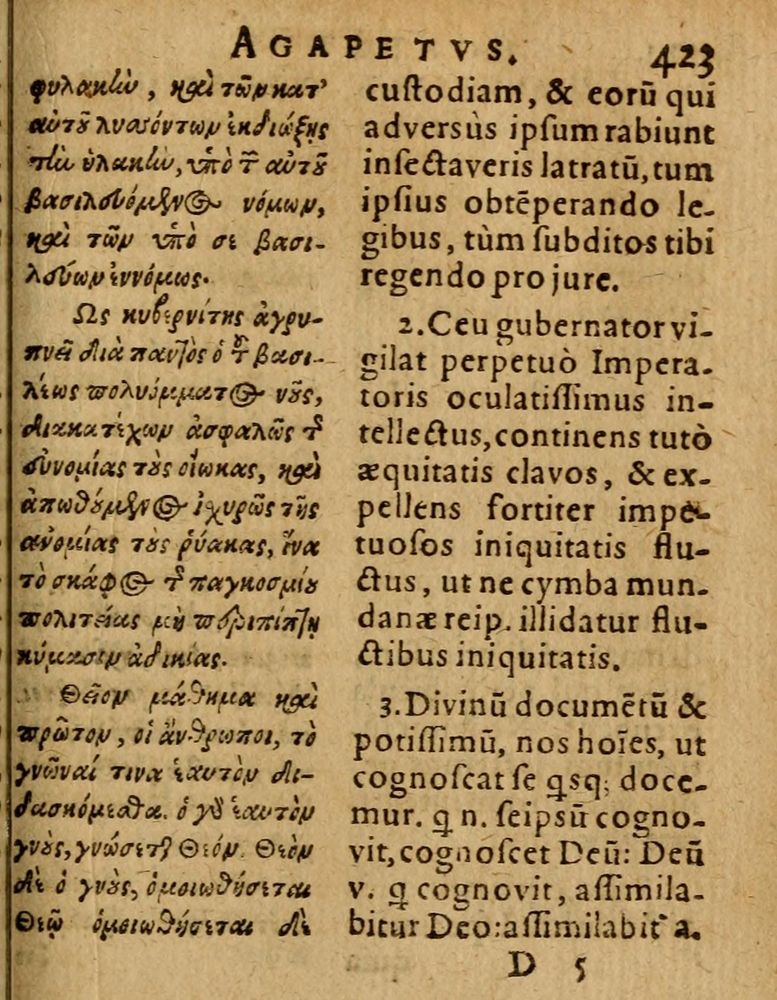 AGAPETVS. 423
φυλακὴν, καὶ τῶν κατ'
αὐτοῦ λυσσόντων ἐκδιώξῃς
τὴν ὑλακὴν, ὑπὸ τῶν αὐτοῦ
βασιλευόμενος νόμων,
καὶ τῶν ὑπὸ σὲ βασι-
λεύων ἐννόμως.
Ὡς κυβερνήτης ἀγρυ-
πνεῖ διὰ παντὸς ὁ τοῦ βασι-
λέως πολυόμματος νοῦς,
διακατέχων ἀσφαλῶς τῆς
εὐνομίας τοὺς οἴακας, καὶ
ἀπωθούμενος ἰσχυρῶς τῆς
ἀνομίας τοὺς ῥύακας, ἵνα
τὸ σκάφος τῆς παγκοσμίου
πολιτείας μὴ περιπίπτῃ
κύμασιν ἀδικίας.
Θεῖον μάθημα καὶ
πρῶτον, οἱ ἄνθρωποι, τὸ
γνῶναί τινα ἑαυτὸν δι-
δασκόμεθα. ὁ γὰρ ἑαυτὸν
γνοὺς, γνώσεται Θεόν. Θεὸν
δὲ ὁ γνοὺς, ὁμοιωθήσεται
Θεῷ ὁμοιωθήσεται δὲ
custodiam, & eorū qui
adversùs ipsum rabiunt
insectaveris latratū, tum
ipsius obtēperando le-
gibus, tùm subditos tibi
regendo pro jure.
2. Ceu gubernator vi-
gilat perpetuò Impera-
toris oculatissimus in-
tellectus, continens tutò
æquitatis clavos, & ex-
pellens fortiter impe-
tuosos iniquitatis flu-
ctus, ut ne cymba mun-
danæ reip. illidatur flu-
ctibus iniquitatis.
3. Divinū documētū &
potissimū, nos hoīes, ut
cognoscat se qsq; doce-
mur. q n. seipsū cogno-
vit, cognoscet Deū: Deū
v. q cognovit, assimila-
bitur Deo: assimilabit a.
D 5